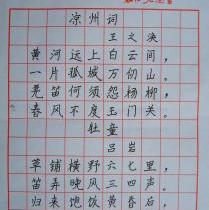 凉州词
王之涣
黄河远上白云间，
一片孤城万仞山。
羌笛何须怨杨柳，
春风不度玉门关。
牧童
吕岩
草铺横野六七里，
笛弄晚风三四声。
归来饱饭黄昏后，